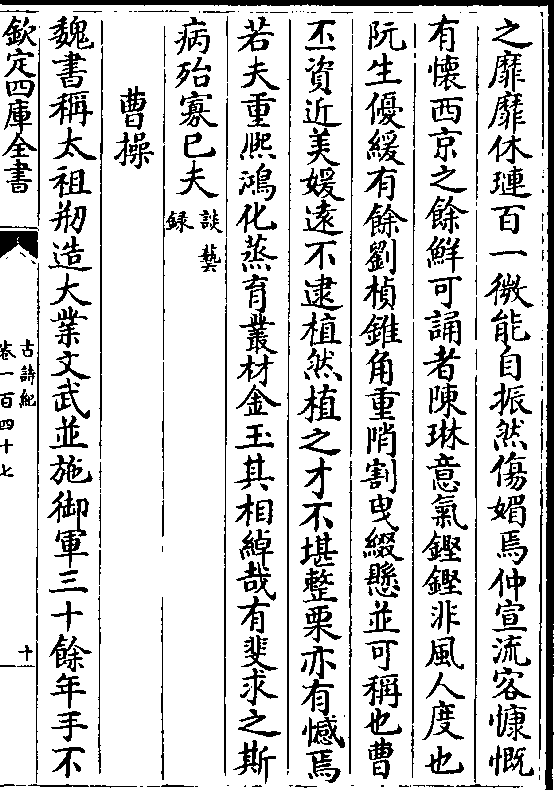 之靡靡休璉百一微能自振然傷媚焉仲宣流客慷慨
有懐西京之餘鮮可誦者陳琳意氣鏗鏗非風人度也
阮生優緩有餘劉楨錐角重陗割曳綴懸並可稱也曹
丕資近美媛遠不逮植然植之才不堪整栗亦有憾焉
若夫重熙鴻化蒸育叢材金玉其相綽哉有斐求之斯
病殆寡已夫
談藝
録
曹操
魏書稱太祖剏造大業文武並施御軍三十餘年手不
欽定四庫全書
古詩紀
卷一百四十七
十